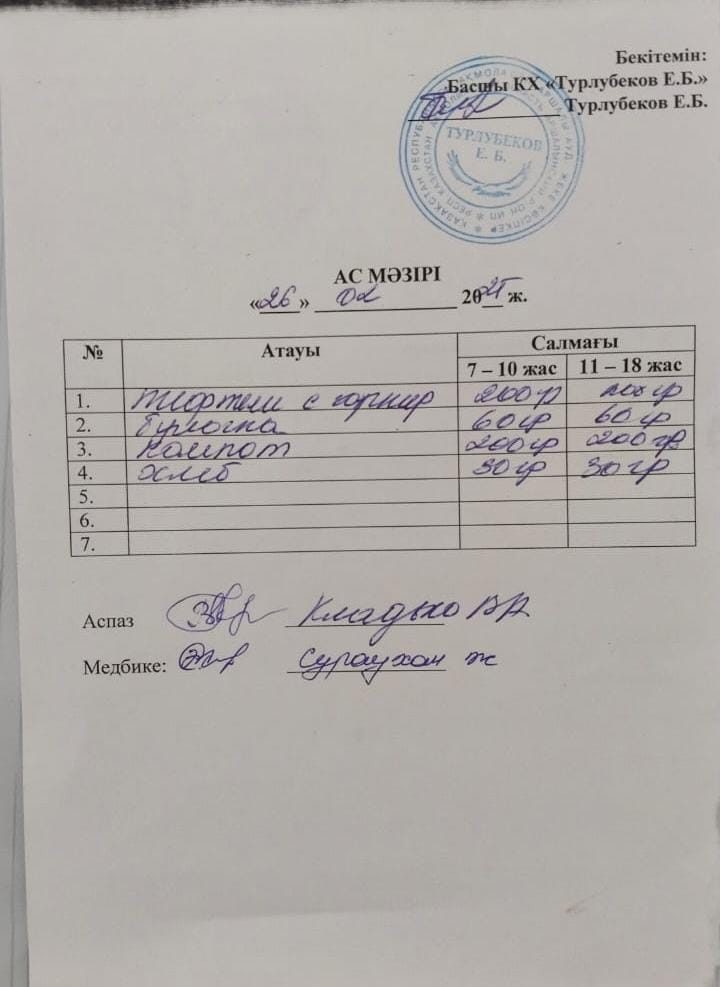 Бекітемін:
Басшы КХ «Турлубеков Е.Б.»
Турлубеков Е.Б.
ТУРЛУБЕКОВ
Е. Б.
АС МӘЗІРІ
«26» 02 2025 ж.
№ Атауы Салмағы
7 – 10 жас 11 – 18 жас
1. Тефтели с гарнир 200гр 200 гр
2. Булочка 60гр 60 гр
3. Компот 200гр 200 гр
4. Хлеб 30 гр 30 гр
5.
6.
7.
Аспаз Кладько
Медбике: Сураухан Ж